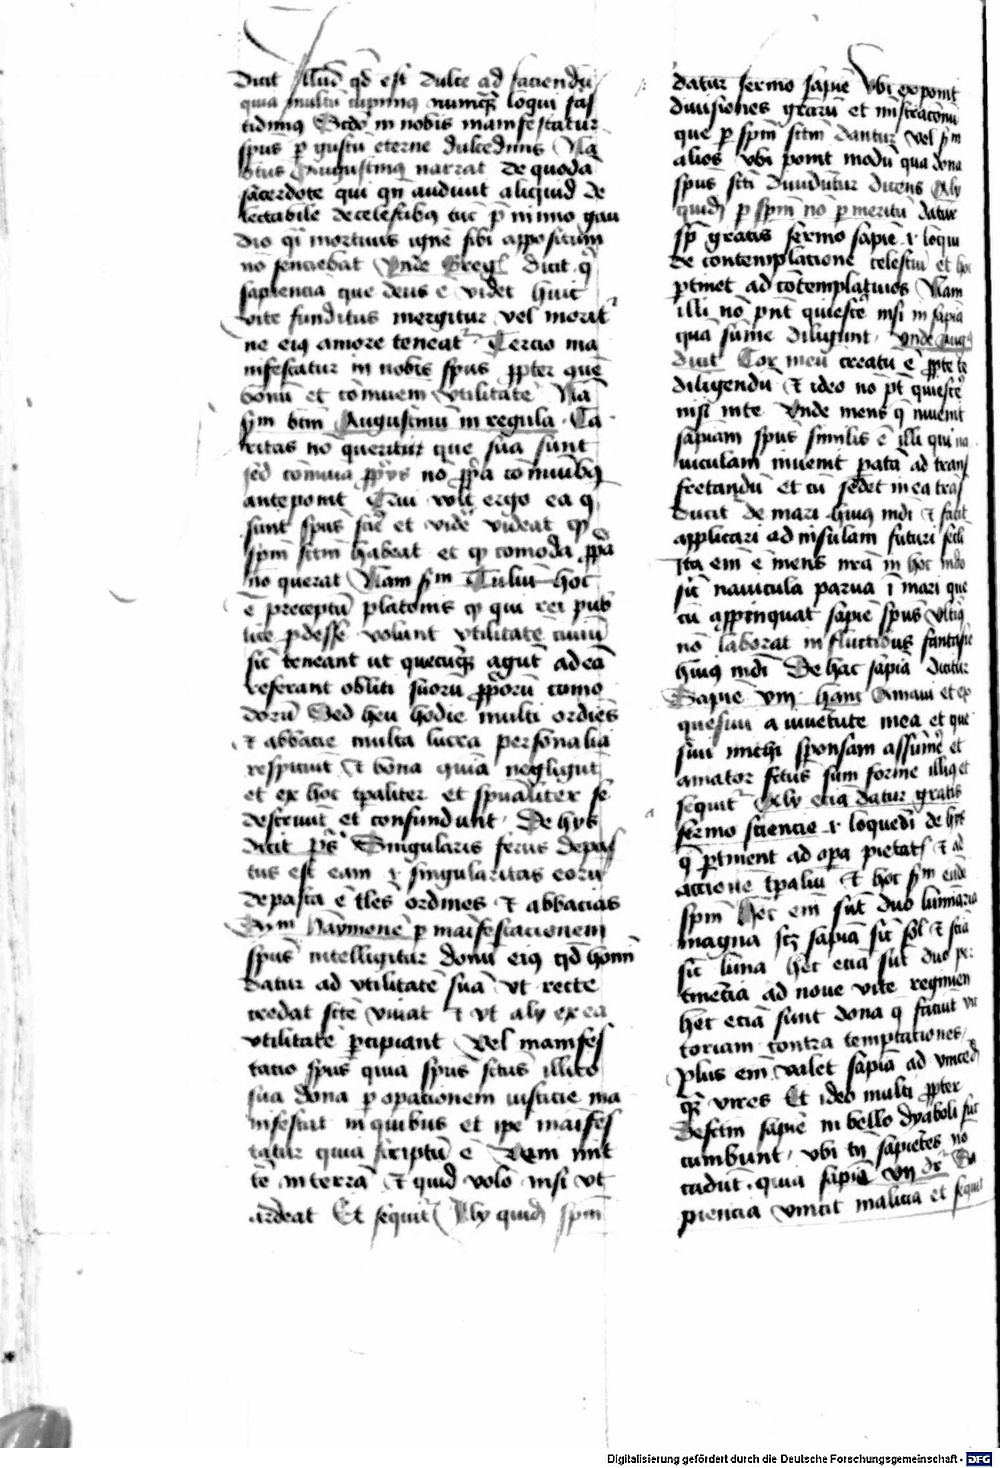 dicit Illud qd est dulce ad faciendū
quia multū cupimꝯ numqꝫ loqui fas
tidimꝯ Scdo in nobis manifestatur
spūs p gustū eterne dulcedinis Na
Augustinꝯ narrat de quodā
sacerdote qui qn audiuit aliquid de
lectabile de celestibꝯ tūc p nimio gau
dio qsi mortuus igne sibi appositum
nō senciebat Vnde Greg dicit q
sapiencia que deus ē videt huic
vite funditus mergitur vel morat
ne eiꝯ amore teneat Tercio ma
nifestatur in nobis spūs ꝓpter que
bonū et cōmuem vtilitatē Nā
scdm btm Augustinū in regula Ca
ritas nō queritur que sua sunt
sed cōmuia ꝓprijs nō ꝓpa cōmuibꝯ
anteponit Qui vult ergo ea q
sunt spūs sci et videre videat qꝫ
spm sctm habeat et qꝫ comoda ꝓpa
nō querat Nam scdm Tulliū hoc
ē preceptū platonis qꝫ qui rei pub
lice pdesse volunt vtilitatē ciuiū
sic teneant ut quecūqꝫ agūt ad eā
referant obliti suorū ꝓpiorū como
dorū Sed heu hodie multi ordīes
et abbacie multa lucra personalia
respiciūt et bona quia negligūt
et ex hoc tpaliter et spūaliter se
destruūt et confundunt De hijs
dicit ps Singularis ferus depas
tus est eam i singularitas eorū
depasta ē tles ordines et abbacias
Scdm Haymonē p maifestacionem
spūs intelligitur donū eiꝯ qd homī
datur ad vtilitatē suā vt recte
credat scte viuat et vt alij ex ea
vtilitatē pcipiant Vel manifes
tatio spūs quia spūs sctus illico
sua dona p opacionem iusticie ma
nifestat in quibus et ipe maifes
tatur quia scriptū ē Ignem mit
tē in terrā et quid volo nisi vt
ardeat Et sequitur Alij quidē spm
datur sermo sapiē Vbi exponit
diuisiones grarū et mistracionū
que p spm sctm dantur vel scdm
alios vbi ponit modū qua dona
spūs scti diuidūtur dicens Alij
quidē p spm nō p meritū datur
sp gratis sermo sapiē i loqui
de contemplatione celestiū et hoc
ptinet ad cōtemplatiuos Nam
illi nō pnt quiescē nisi in sapia
quā sūme diligunt Vnde Aug
dicit Cor meū creatū ē ꝓpter te
diligendū et ideo nō pt quiescē
nisi in te Vnde mens q inuenit
sapiam spūs similis ē illi qui na
uiculam inuenit patā ad trans
fretandū et cū sedet in ea tras
ducit de mari huiꝯ mdi et facit
applicari ad insulam futuri scli
Ita em ē mens nrā in hoc mdo
sic nauicula parua ī mari que
cū appinquat sapiē spūs vltiꝯ
nō laborat in fluctibus fantasie
huiꝯ mdi De hac sapia dicitur
Sapiē viij hanc Amaui et ex
quesiui a iuuētute mea et que
siui michi sponsam assumē et
amator fctus sum forme illiꝯ et
sequit Alij eciā datur gratis
sermo sciencie i loquedi de hijs
q ptinent ad opa pietatis et ad
accionē tpaliū Et hoc scdm eūdē
spm Hec em sūt duo luminaria
magna scꝫ sapia sic sol et scia
sic luna hec eciā sūt duo per
tinecia ad noue vite regimen
hec eciā sunt dona q faciūt vic
toriam contra temptaciones
Plus em valet sapia ad vincedū
q vires Et ideo multi ꝓpter
defctm sapiē in bello dyaboli suc
cumbunt vbi tn sapietes nō
cadūt quia sapia vij dr Sa
piencia vincit malicia et sequit
Digitalisierung gefördert durch die Deutsche Forschungsgemeinschaft - DFG